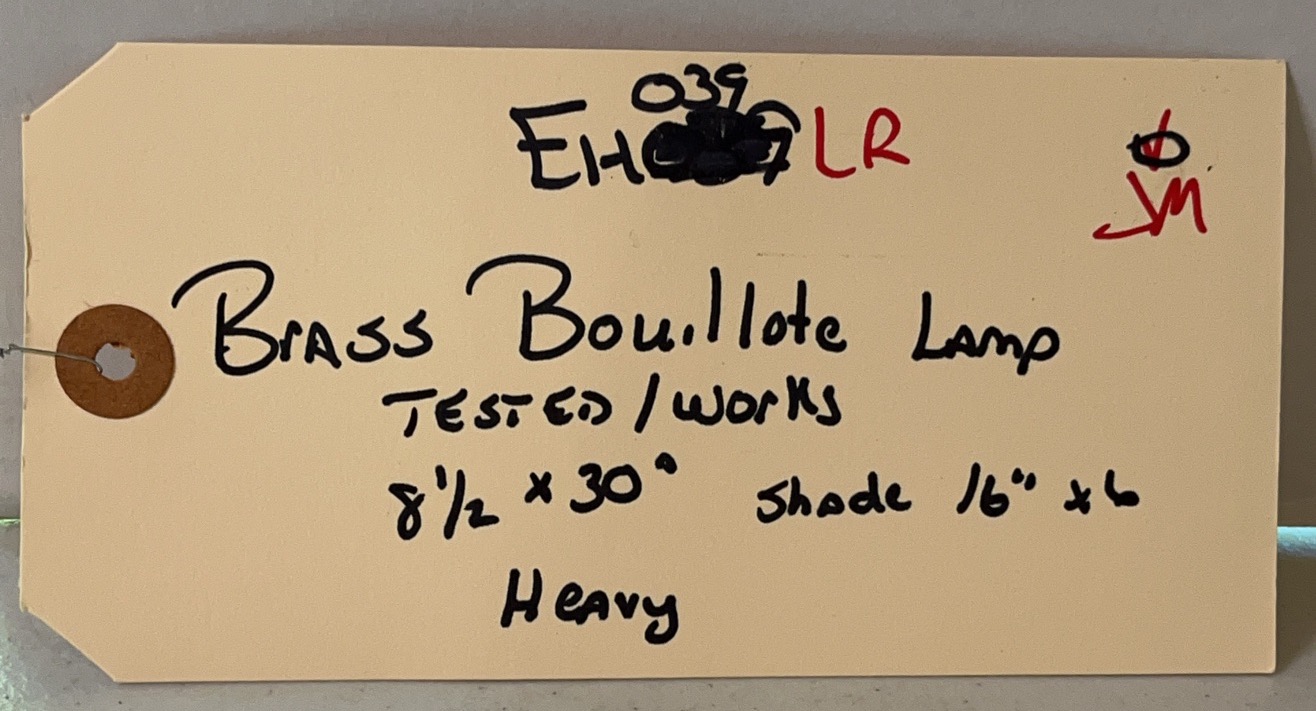 039
EH LR
JM
Brass Bouillote Lamp
TESTED / Works
8 1/2 x 30" Shade 16" x 6
Heavy